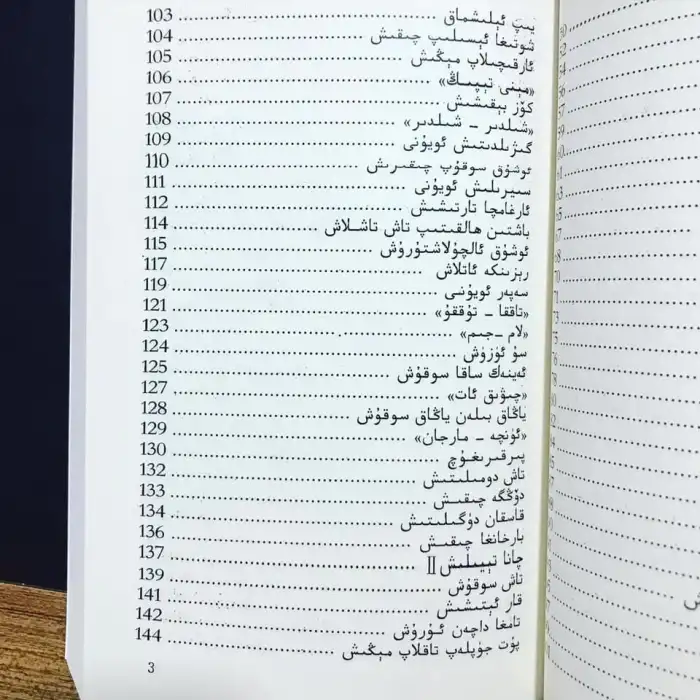 يىپ ئېلىشماق ........ 103
شوتىغا ئېسىلىپ چىقىش ........ 104
ئارقىچىلاپ مېڭىش ........ 105
«مېنى تېپىڭ» ........ 106
كۆز بېقىشىش ........ 107
«شىلدىر - شىلدىر» ........ 108
گىژىلدىتىش ئويۇنى ........ 109
ئوشۇق سوقۇپ چىقىرىش ........ 110
سىيرىلىش ئويۇنى ........ 111
ئارغامچا تارتىشىش ........ 112
باشتىن ھالقىتىپ تاش تاشلاش ........ 114
ئوشۇق ئالچۇلاشتۇرۇش ........ 115
رېزىنكە ئاتلاش ........ 117
سەپەر ئويۇنى ........ 119
«تاققا - تۇققۇ» ........ 121
«لام -جىم» ........ 123
سۇ ئۈزۈش ........ 124
ئەينەك ساقا سوقۇش ........ 125
«چىۋىق ئات» ........ 127
ياڭاق بىلەن ياڭاق سوقۇش ........ 128
«ئۈنچە - مارجان» ........ 129
پىرقىرىغۇچ ........ 130
تاش دومىلىتىش ........ 132
دۆڭگە چىقىش ........ 133
قاسقان دۈگىلىتىش ........ 134
بارخانغا چىقىش ........ 136
چانا تېيىلىش II ........ 137
تاش سوقۇش ........ 139
قار ئېتىشىش ........ 141
تامغا داچەن ئۇرۇش ........ 142
پۇت جۈپلەپ تاقلاپ مېڭىش ........ 144
3